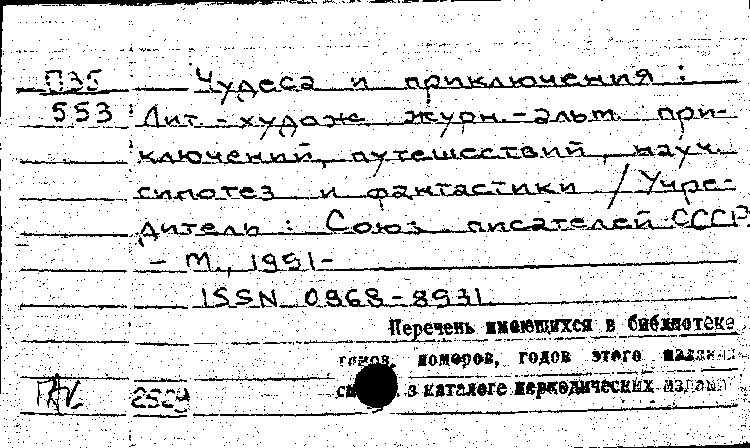 П35
553
Чудеса и приключения :
Лит.-худож. журн.-альм. при-
ключений, путешествий, науч.
гипотез и фантастики / Учре-
дитель : Союз писателей СССР
– М., 1991–
ISSN 0868-8931
Перечень имеющихся в библиотеке
томов, номеров, годов этого издания
в каталоге периодических издани